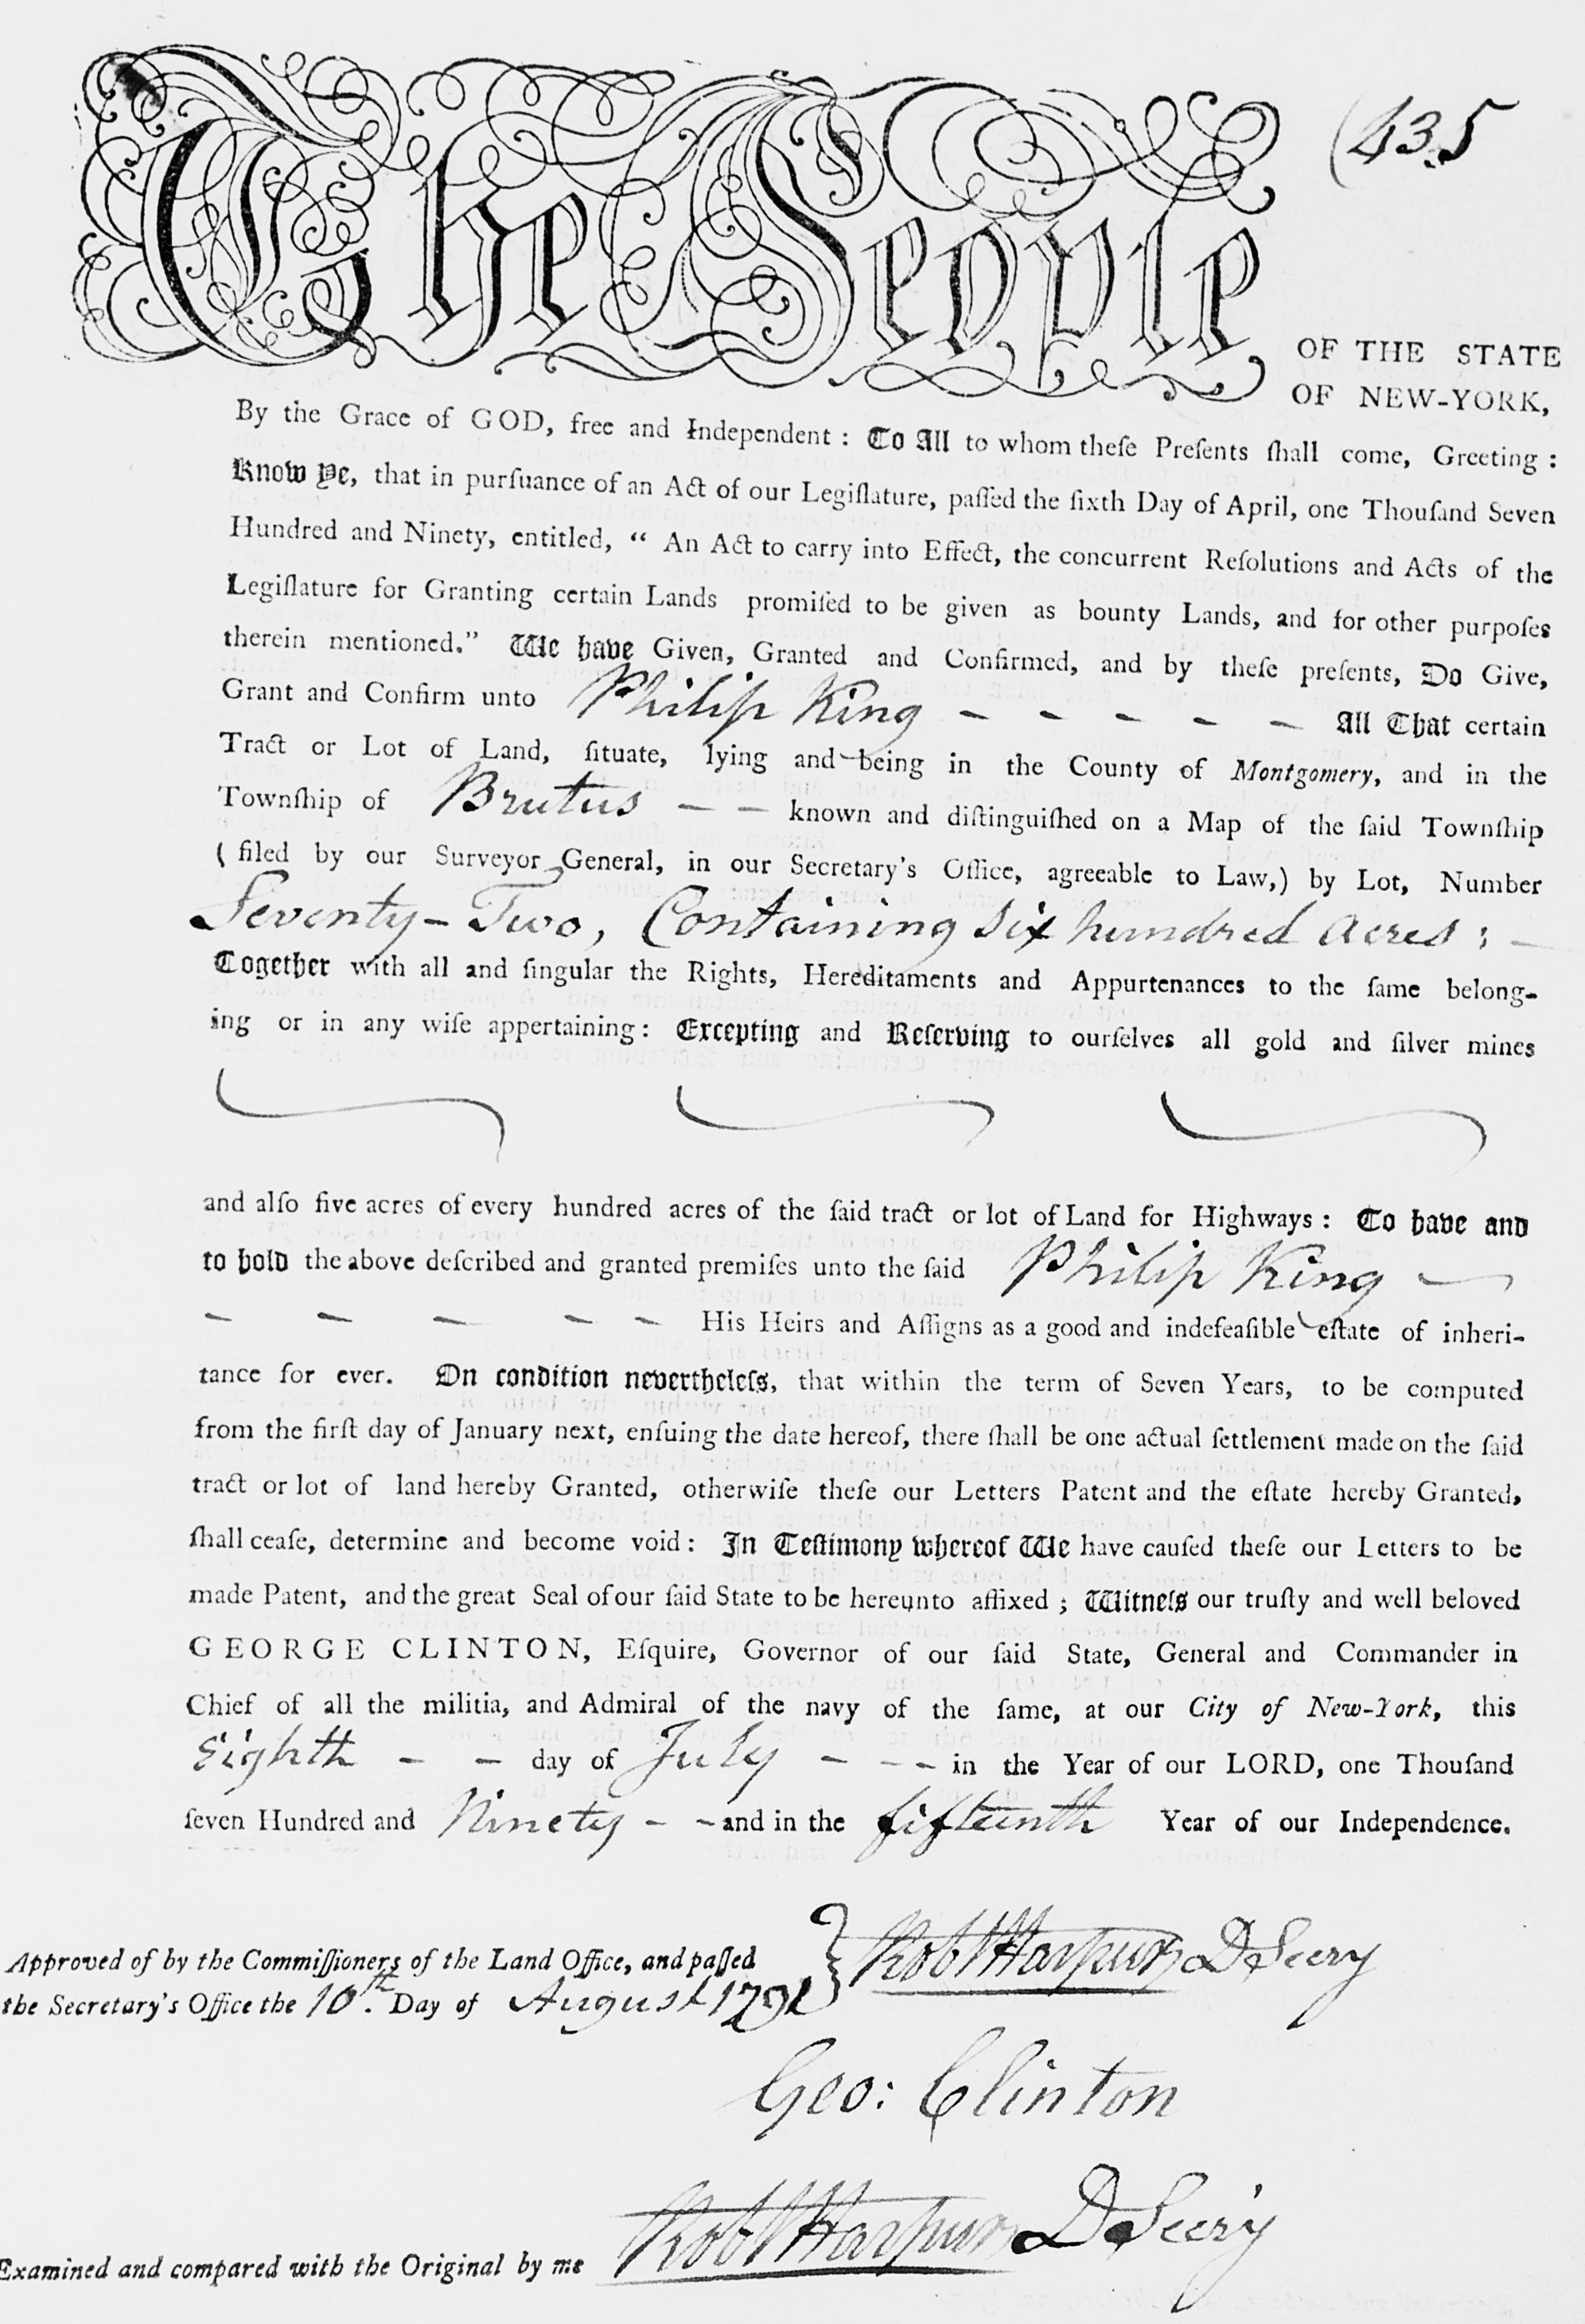 (435
The People OF THE STATE
OF NEW-YORK,
By the Grace of GOD, free and Independent : To All to whom theſe Preſents ſhall come, Greeting :
Know Ye, that in purſuance of an Act of our Legiſlature, paſſed the ſixth Day of April, one Thouſand Seven
Hundred and Ninety, entitled, “ An Act to carry into Effect, the concurrent Reſolutions and Acts of the
Legiſlature for Granting certain Lands promiſed to be given as bounty Lands, and for other purpoſes
therein mentioned.” We have Given, Granted and Confirmed, and by theſe preſents, Do Give,
Grant and Confirm unto Philip King – – – – – All That certain
Tract or Lot of Land, ſituate, lying and being in the County of Montgomery, and in the
Townſhip of Brutus – – known and diſtinguiſhed on a Map of the ſaid Townſhip
( filed by our Surveyor General, in our Secretary's Office, agreeable to Law,) by Lot, Number
Seventy-Two, Containing six hundred acres ; –
Together with all and ſingular the Rights, Hereditaments and Appurtenances to the ſame belong-
ing or in any wiſe appertaining : Excepting and Reſerving to ourſelves all gold and ſilver mines
and alſo five acres of every hundred acres of the ſaid tract or lot of Land for Highways : To have and
to hold the above deſcribed and granted premiſes unto the ſaid Philip King –
– – – – – His Heirs and Aſſigns as a good and indefeaſible eſtate of inheri-
tance for ever. On condition nevertheleſs, that within the term of Seven Years, to be computed
from the firſt day of January next, enſuing the date hereof, there ſhall be one actual ſettlement made on the ſaid
tract or lot of land hereby Granted, otherwiſe theſe our Letters Patent and the eſtate hereby Granted,
ſhall ceaſe, determine and become void : In Teſtimony whereof We have cauſed theſe our Letters to be
made Patent, and the great Seal of our ſaid State to be hereunto affixed ; Witneſs our truſty and well beloved
GEORGE CLINTON, Eſquire, Governor of our ſaid State, General and Commander in
Chief of all the militia, and Admiral of the navy of the ſame, at our City of New-York, this
Eighth – – day of July – – – in the Year of our LORD, one Thouſand
ſeven Hundred and Ninety – – and in the fifteenth Year of our Independence.
Approved of by the Commiſſioners of the Land Office, and paſſed } Robt Harpur D Secry
the Secretary's Office the 10.th Day of August 1791
Geo: Clinton
Examined and compared with the Original by me Robt Harpur D Secry